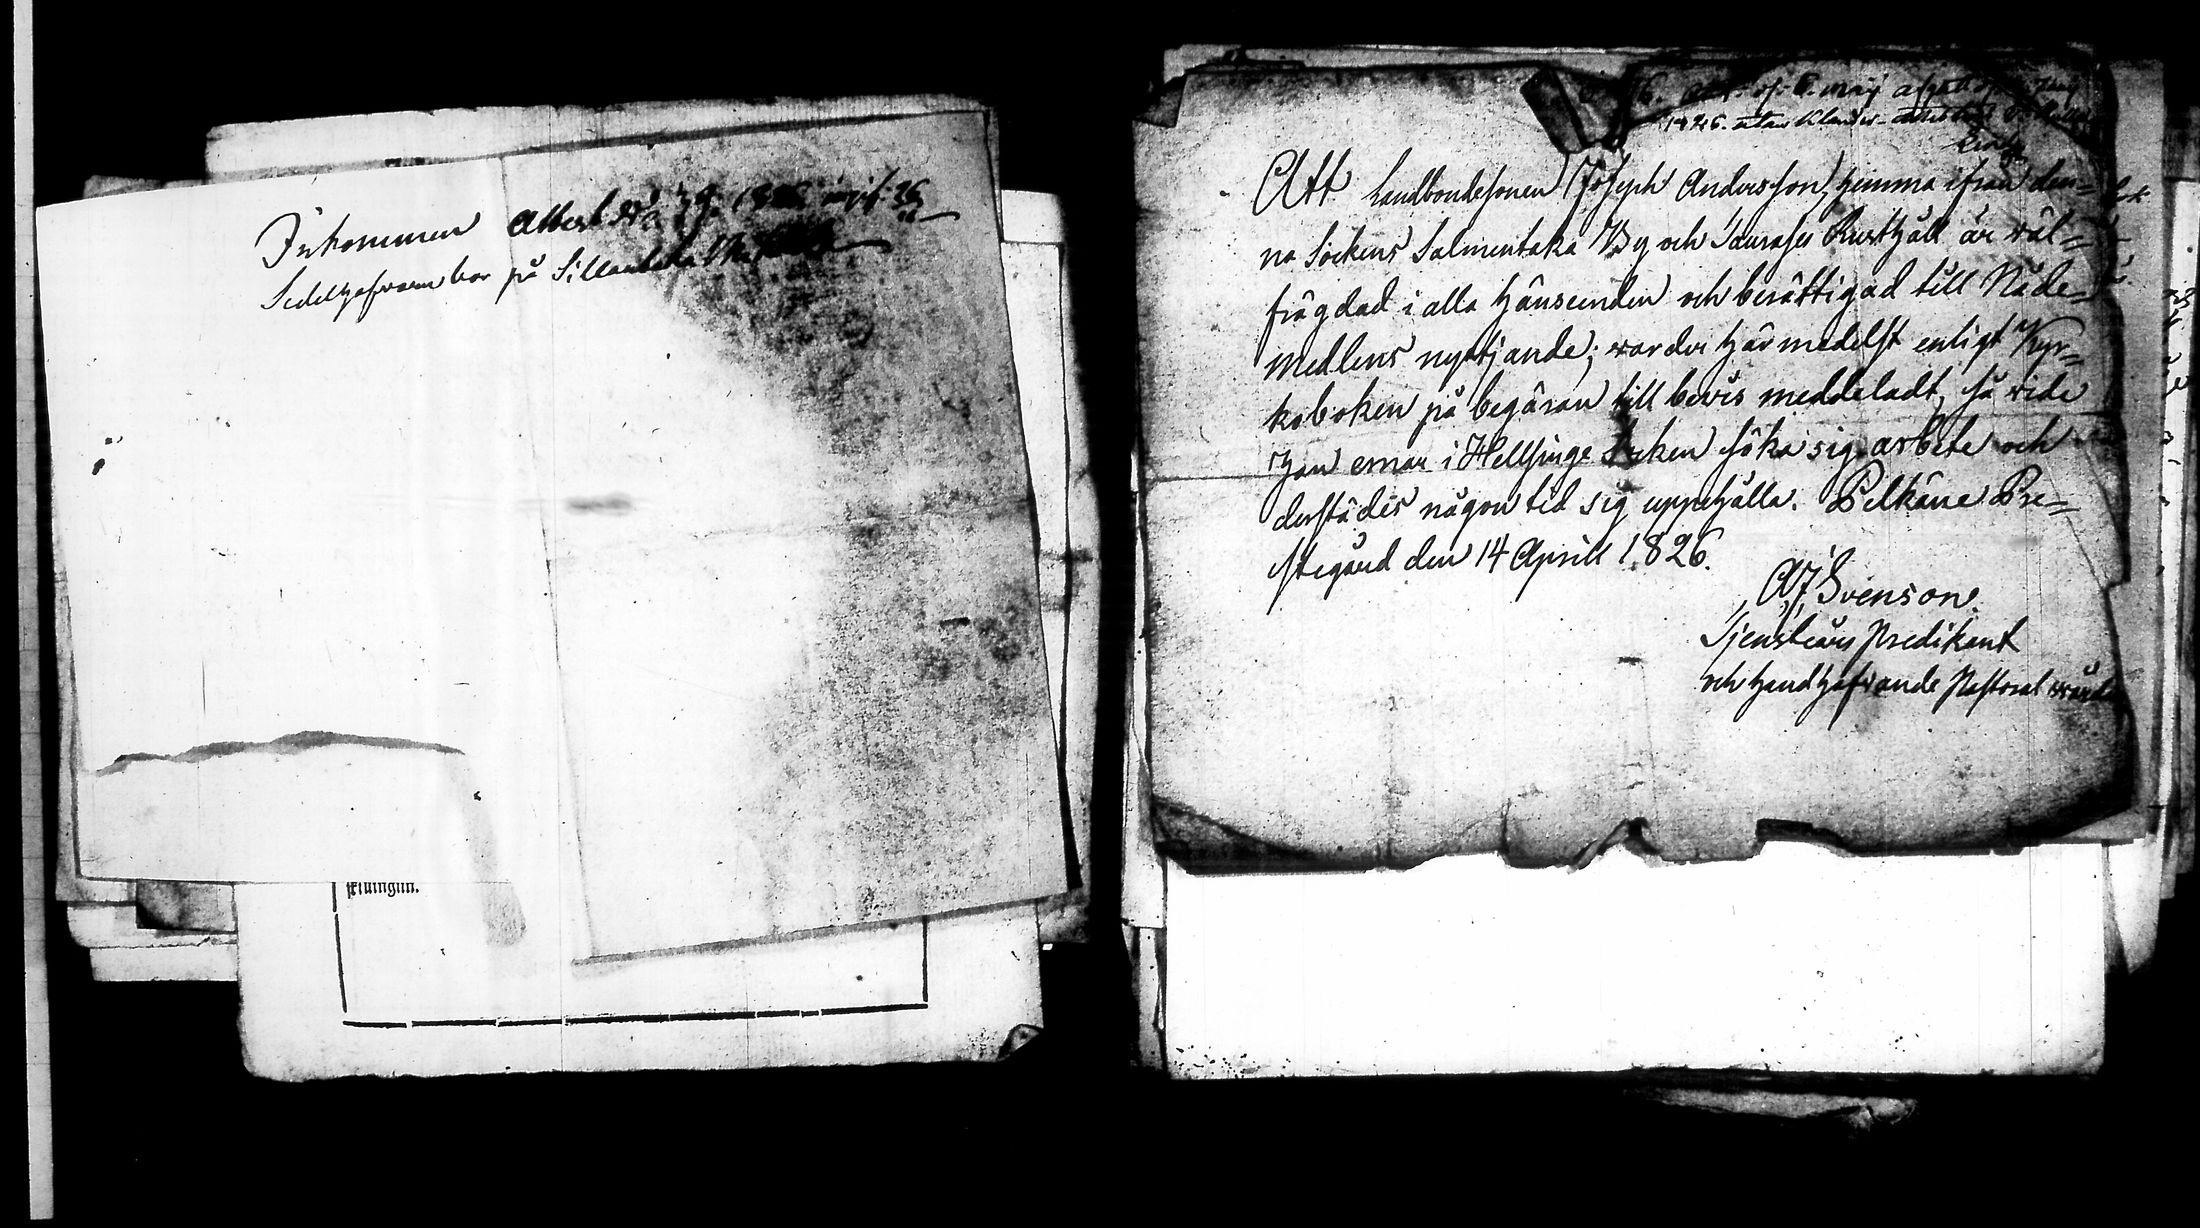 Inkommen Attest No 79. 1826
Sedelhafvaren bor på Sillanbeka
skluingun.
6. maij
1826. utan Klander
Att Landbondesonen Joseph Andersson, hemma ifrån den-
na Sockens Salmentaka By och Taurases Rusthåll är wäl-
frägdad i alla hänseenden och berättigad till Nåde-
medlens nyttjande; warder härmedelst enligt Kyr-
koboken på begäran till bevis meddeladt, så vide
han ernar i Hellsinge Socken söka sig arbete och
derstädes någon tid sig uppehålla. Pelkäne Pre-
stegård den 14 Aprill 1826.
Svenson.
Tjenstegörs Predikant
och handhafvande Pastoral wården